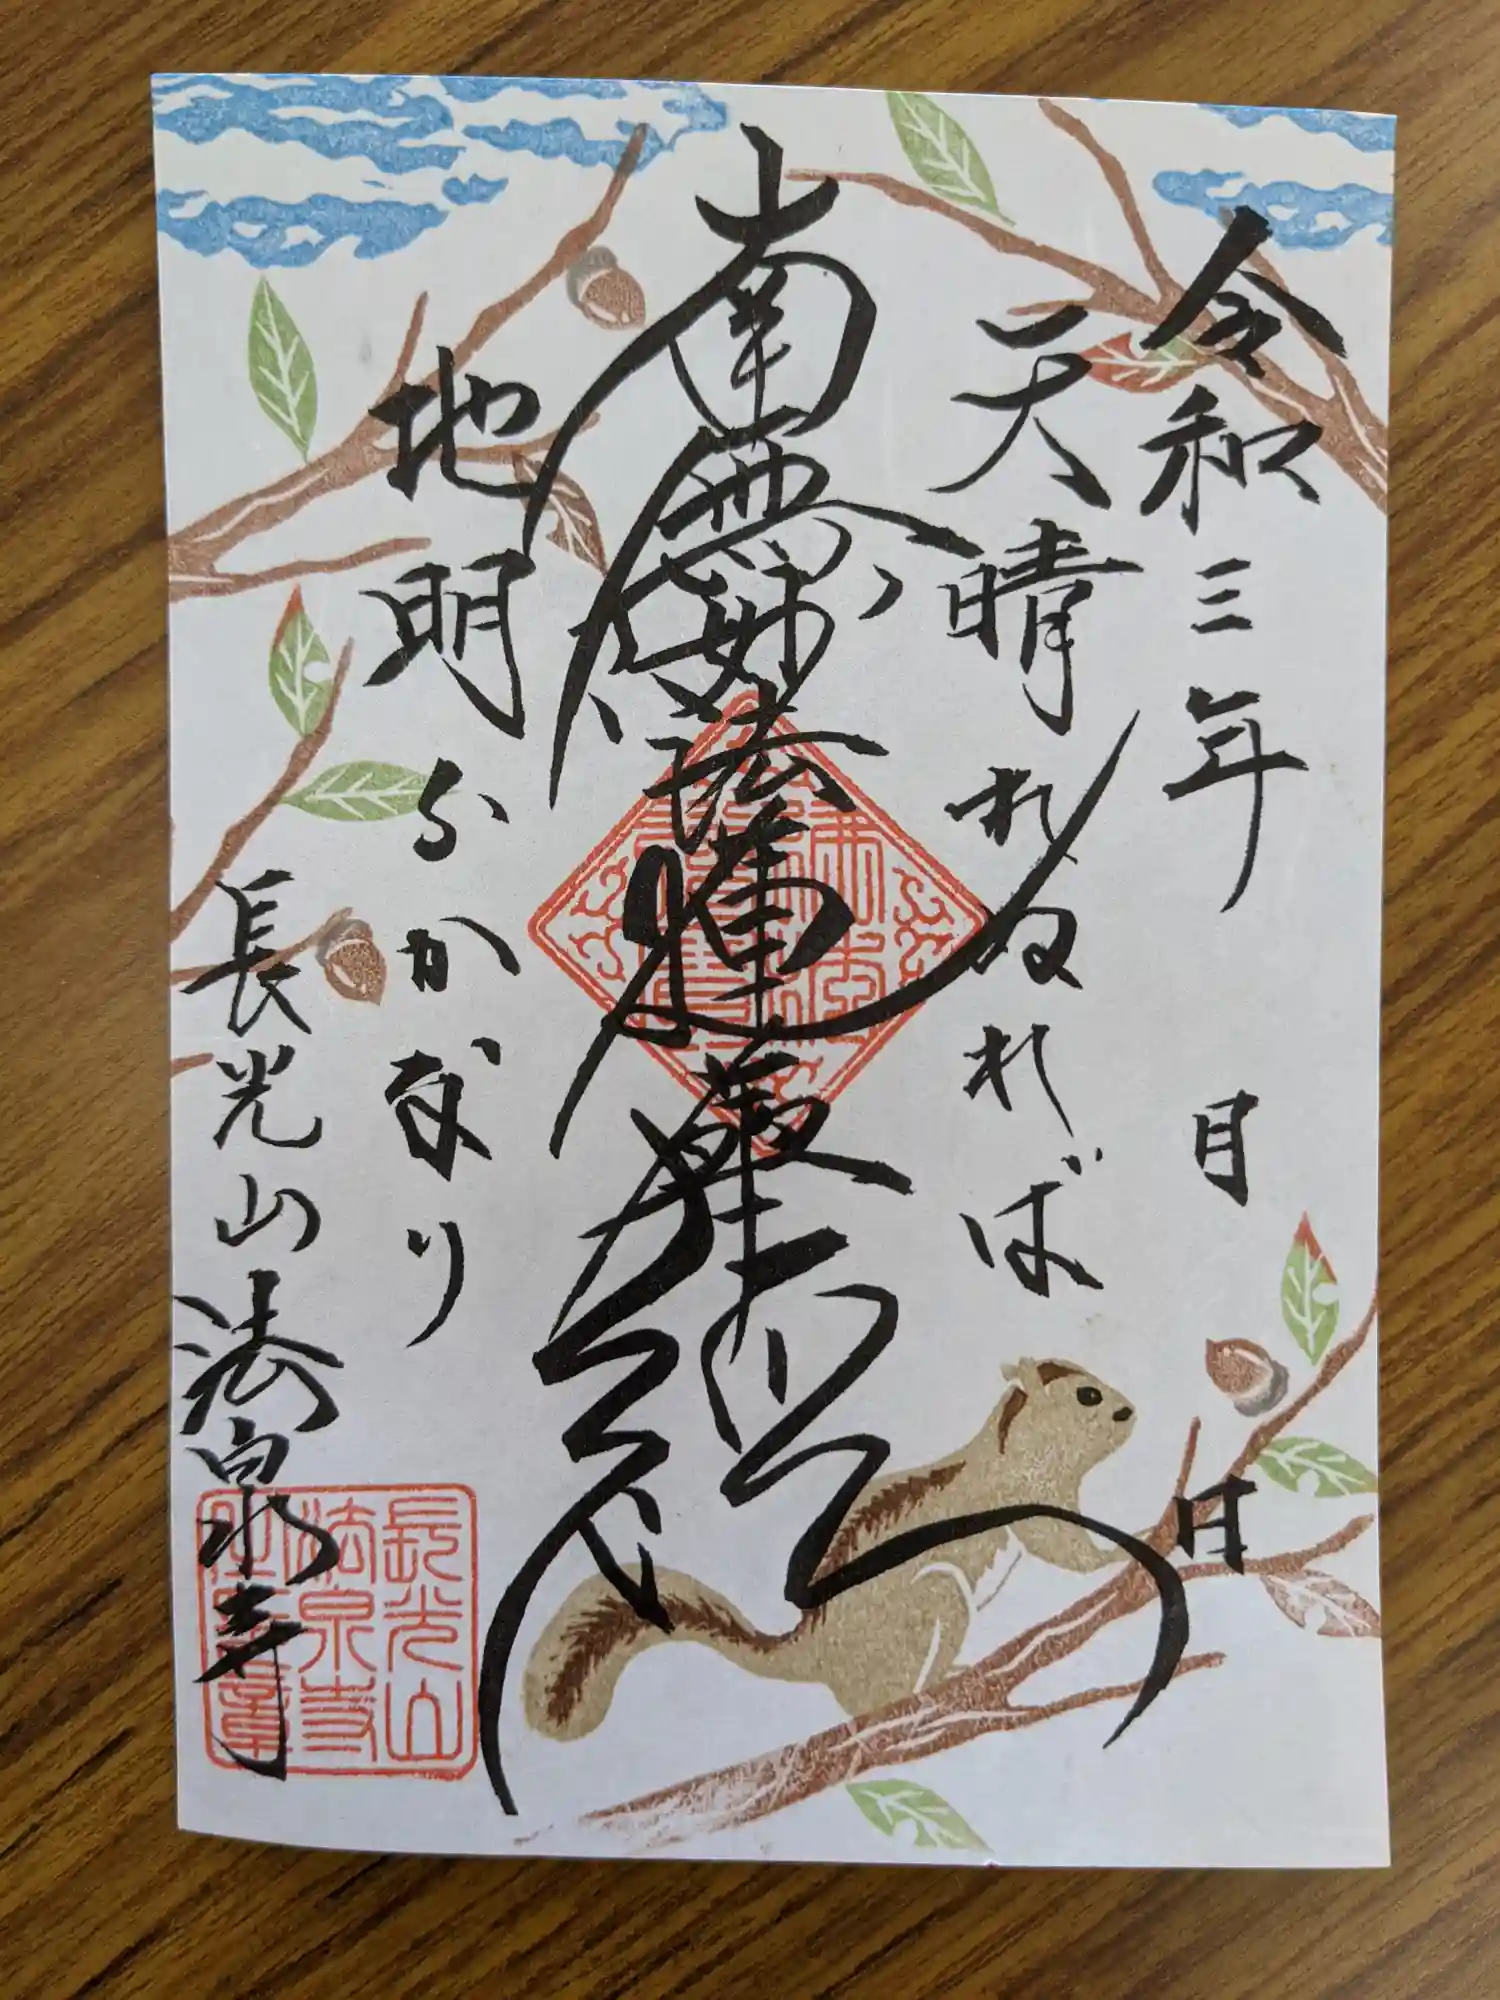 令和三年 月 日
天晴れぬれば
南無妙法蓮華経
地明らかなり
長光山法泉寺
長光山
法泉寺